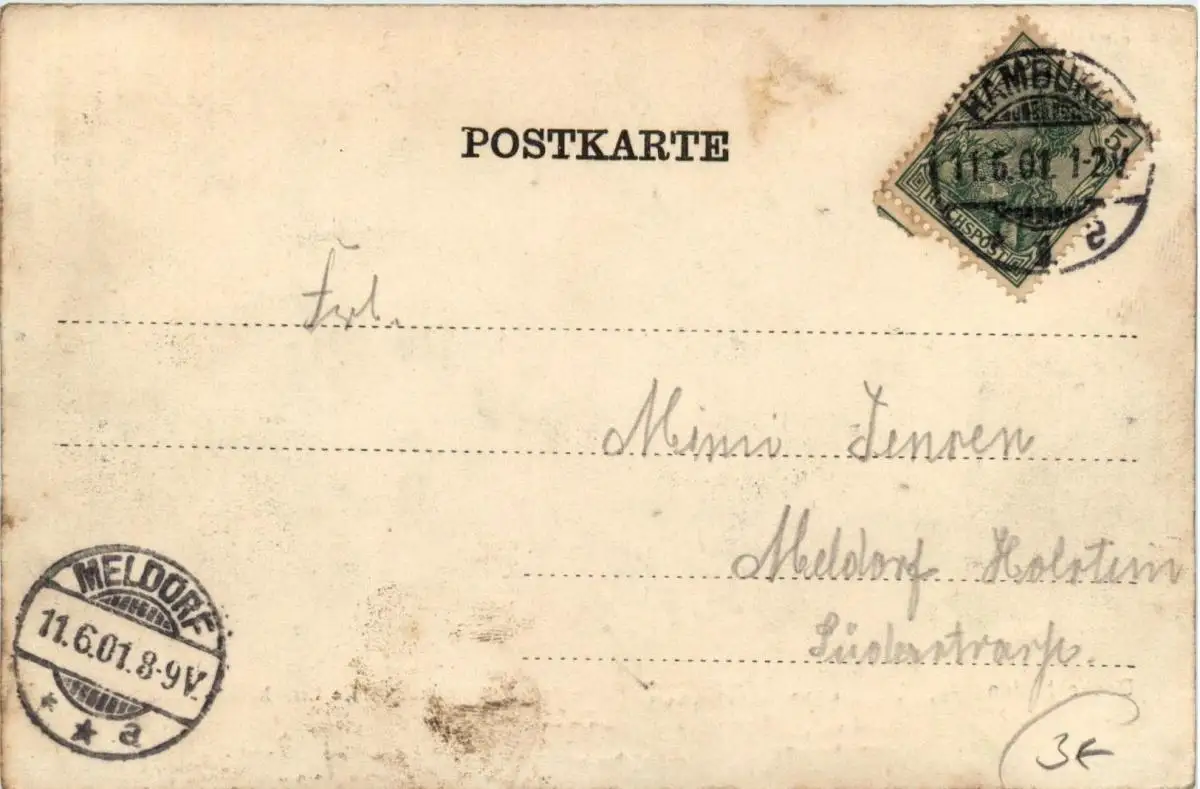 POSTKARTE
HAMBURG 5
11.6.01. 1-2 V.
* 1 a
REICHSPOST
Frl.
Mimi Jensen
Meldorf Holstein
Süderstrasse.
MELDORF
11.6.01. 8-9 V.
* * a
3€